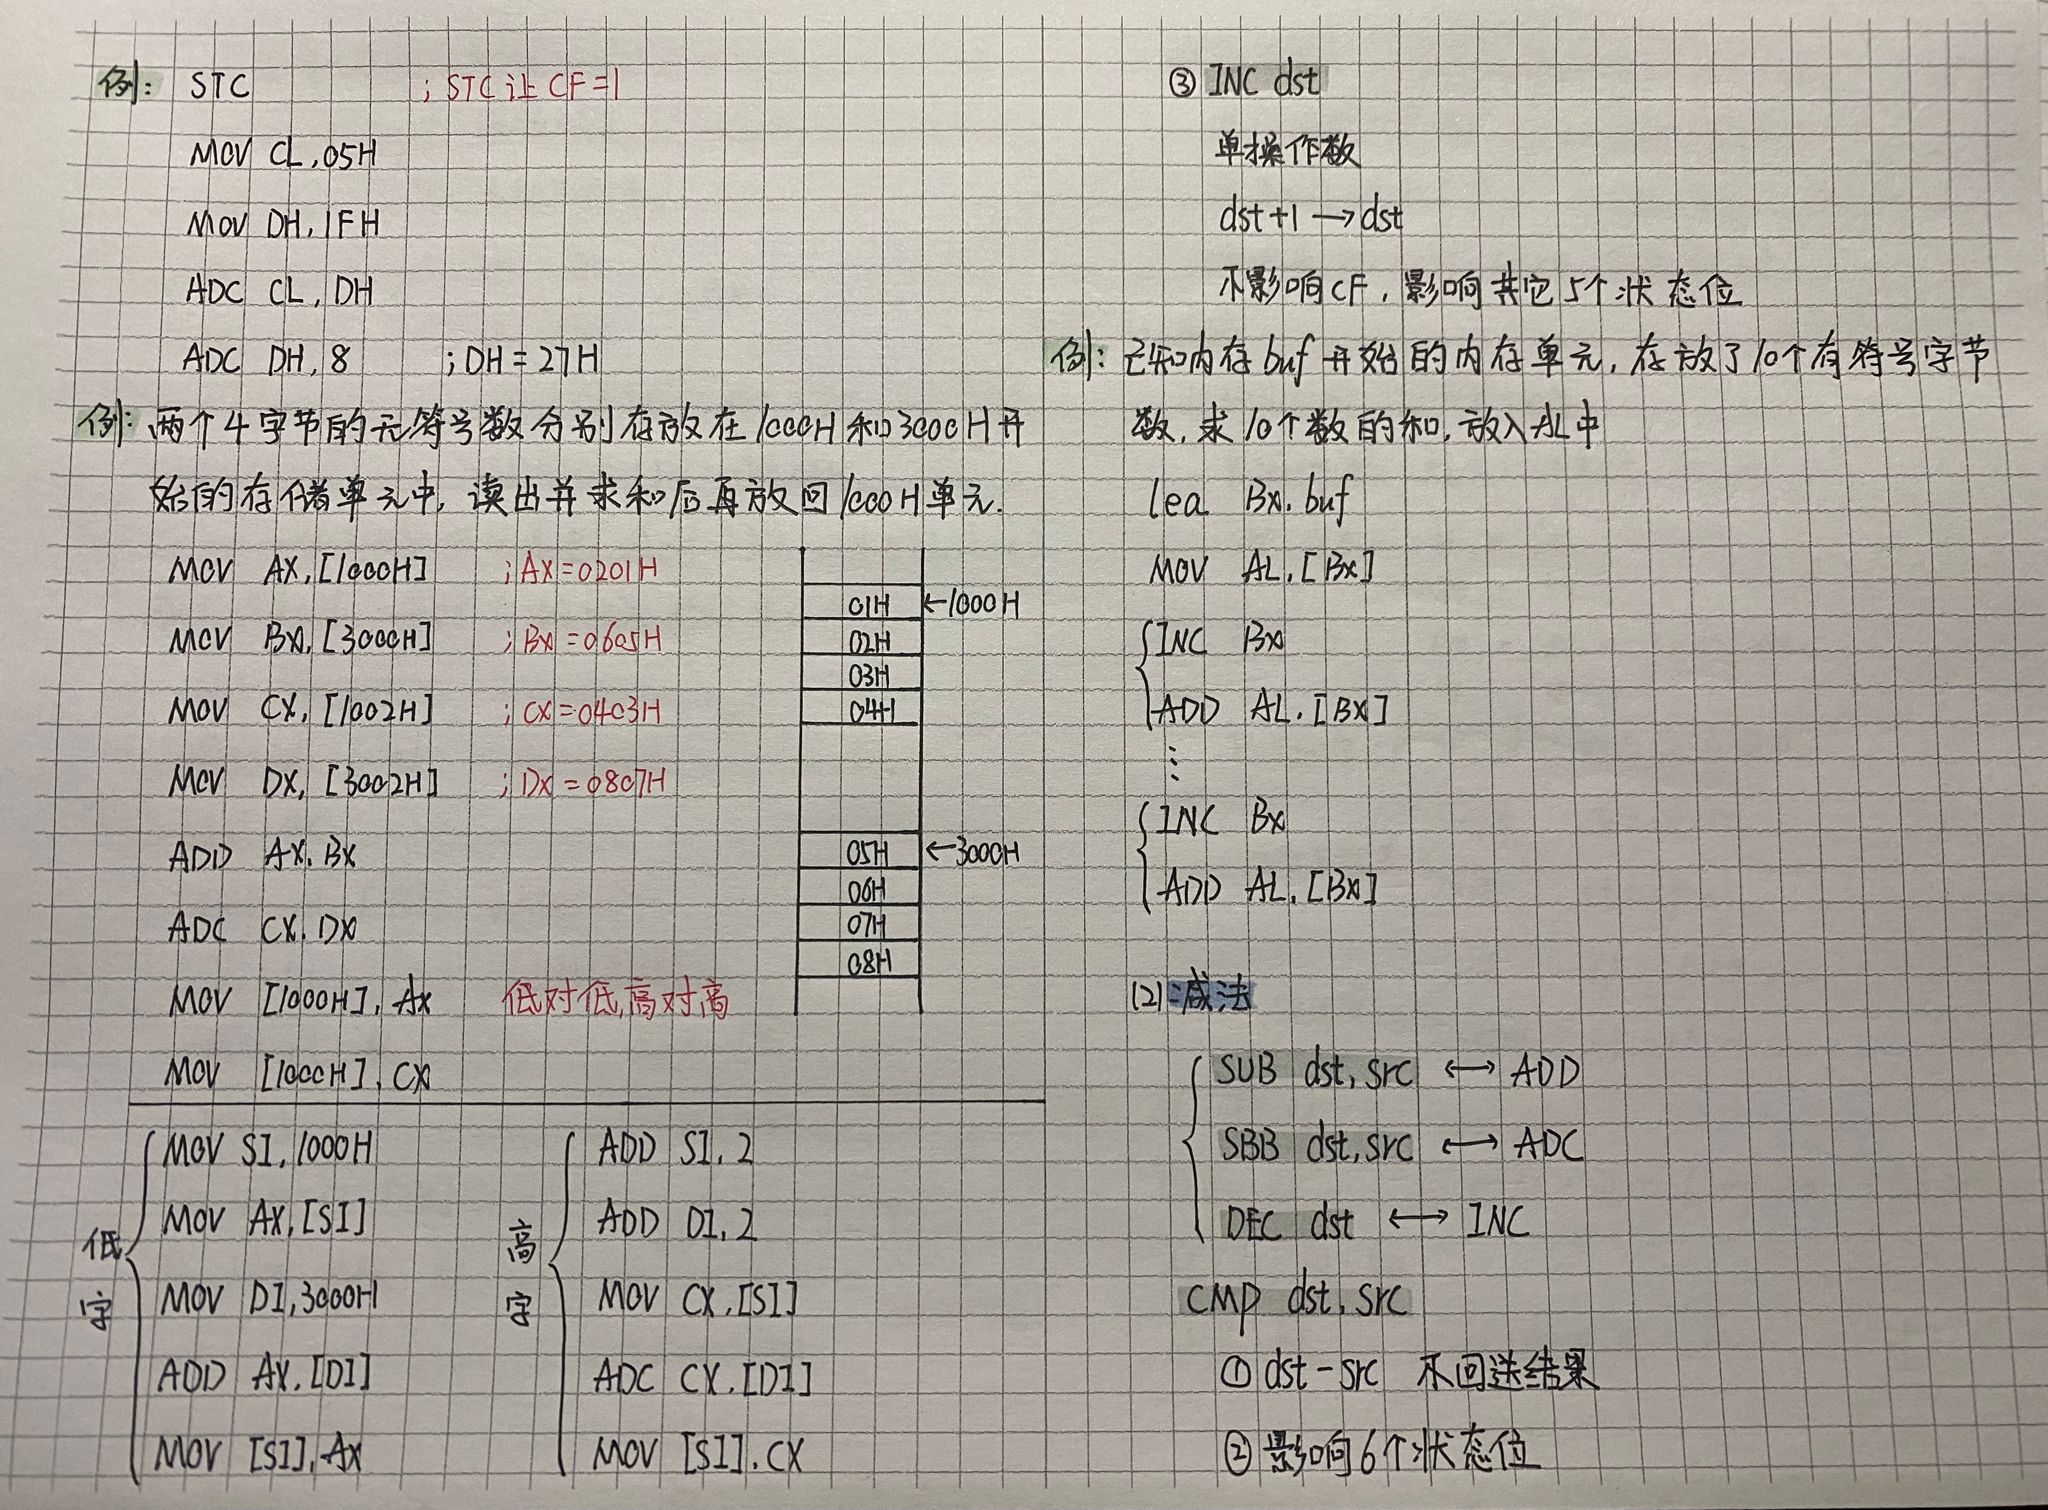 例: STC ; STC 让 CF=1
MOV CL, 05H
MOV DH, 1FH
ADC CL, DH
ADC DH, 8 ; DH = 27H
例: 两个4字节的无符号数分别存放在1000H和3000H开
始的存储单元中, 读出并求和后再放回1000H单元.
MOV AX, [1000H] ; AX=0201H
MOV BX, [3000H] ; BX=0605H
MOV CX, [1002H] ; CX=0403H
MOV DX, [3002H] ; DX=0807H
ADD AX, BX
ADC CX, DX
MOV [1000H], AX 低对低, 高对高
MOV [1000H], CX
01H ←1000H
02H
03H
04H
05H ←3000H
06H
07H
08H
低字
MOV SI, 1000H
MOV AX, [SI]
MOV DI, 3000H
ADD AX, [DI]
MOV [SI], AX
高字
ADD SI, 2
ADD DI, 2
MOV CX, [SI]
ADC CX, [DI]
MOV [SI], CX
③ INC dst
单操作数
dst+1 → dst
不影响CF, 影响其它5个状态位
例: 已知内存buf开始的内存单元, 存放了10个有符号字节
数, 求10个数的和, 放入AL中
lea BX, buf
MOV AL, [BX]
INC BX
ADD AL, [BX]
⋮
INC BX
ADD AL, [BX]
(2) 减法
SUB dst, src ↔ ADD
SBB dst, src ↔ ADC
DEC dst ↔ INC
CMP dst, src
① dst-src 不回送结果
② 影响6个状态位